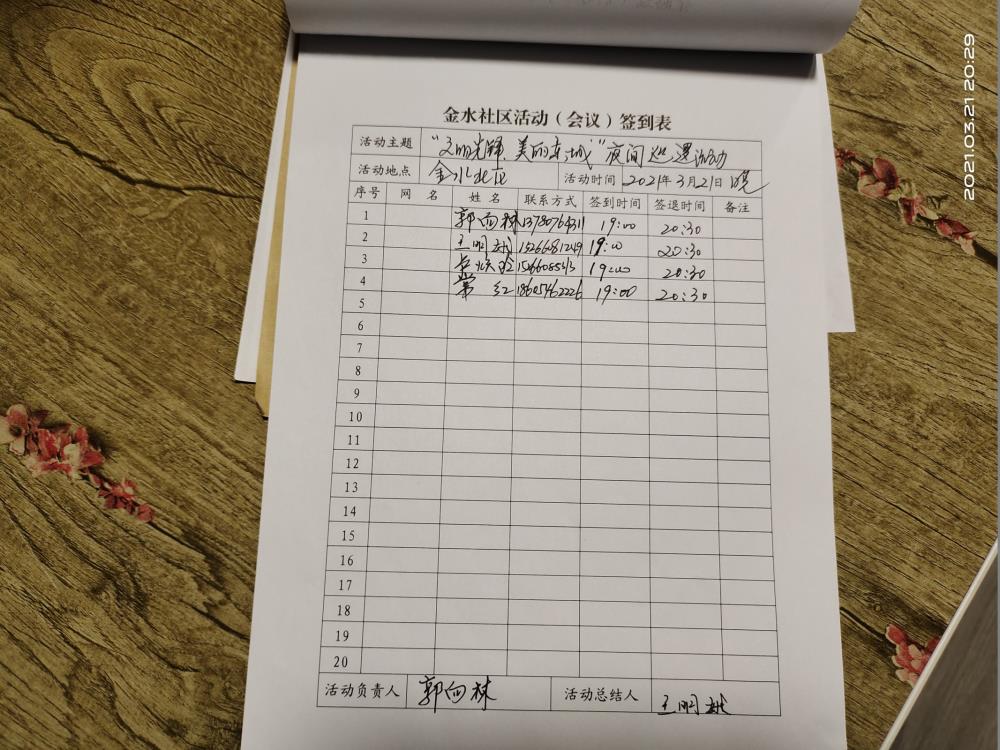 2021.03.21 20:29
金水社区活动（会议）签到表
活动主题 "文明先锋，美丽东城"夜间巡逻活动
活动地点 金水北区 活动时间 2021年3月21日晚
序号 网 名 姓 名 联系方式 签到时间 签退时间 备注
1 郭向林 19:00 20:30
2 王明 15266081249 19:00 20:30
3 19:00 20:30
4 常红 18605462226 19:00 20:30
5
6
7
8
9
10
11
12
13
14
15
16
17
18
19
20
活动负责人 郭向林 活动总结人 王明